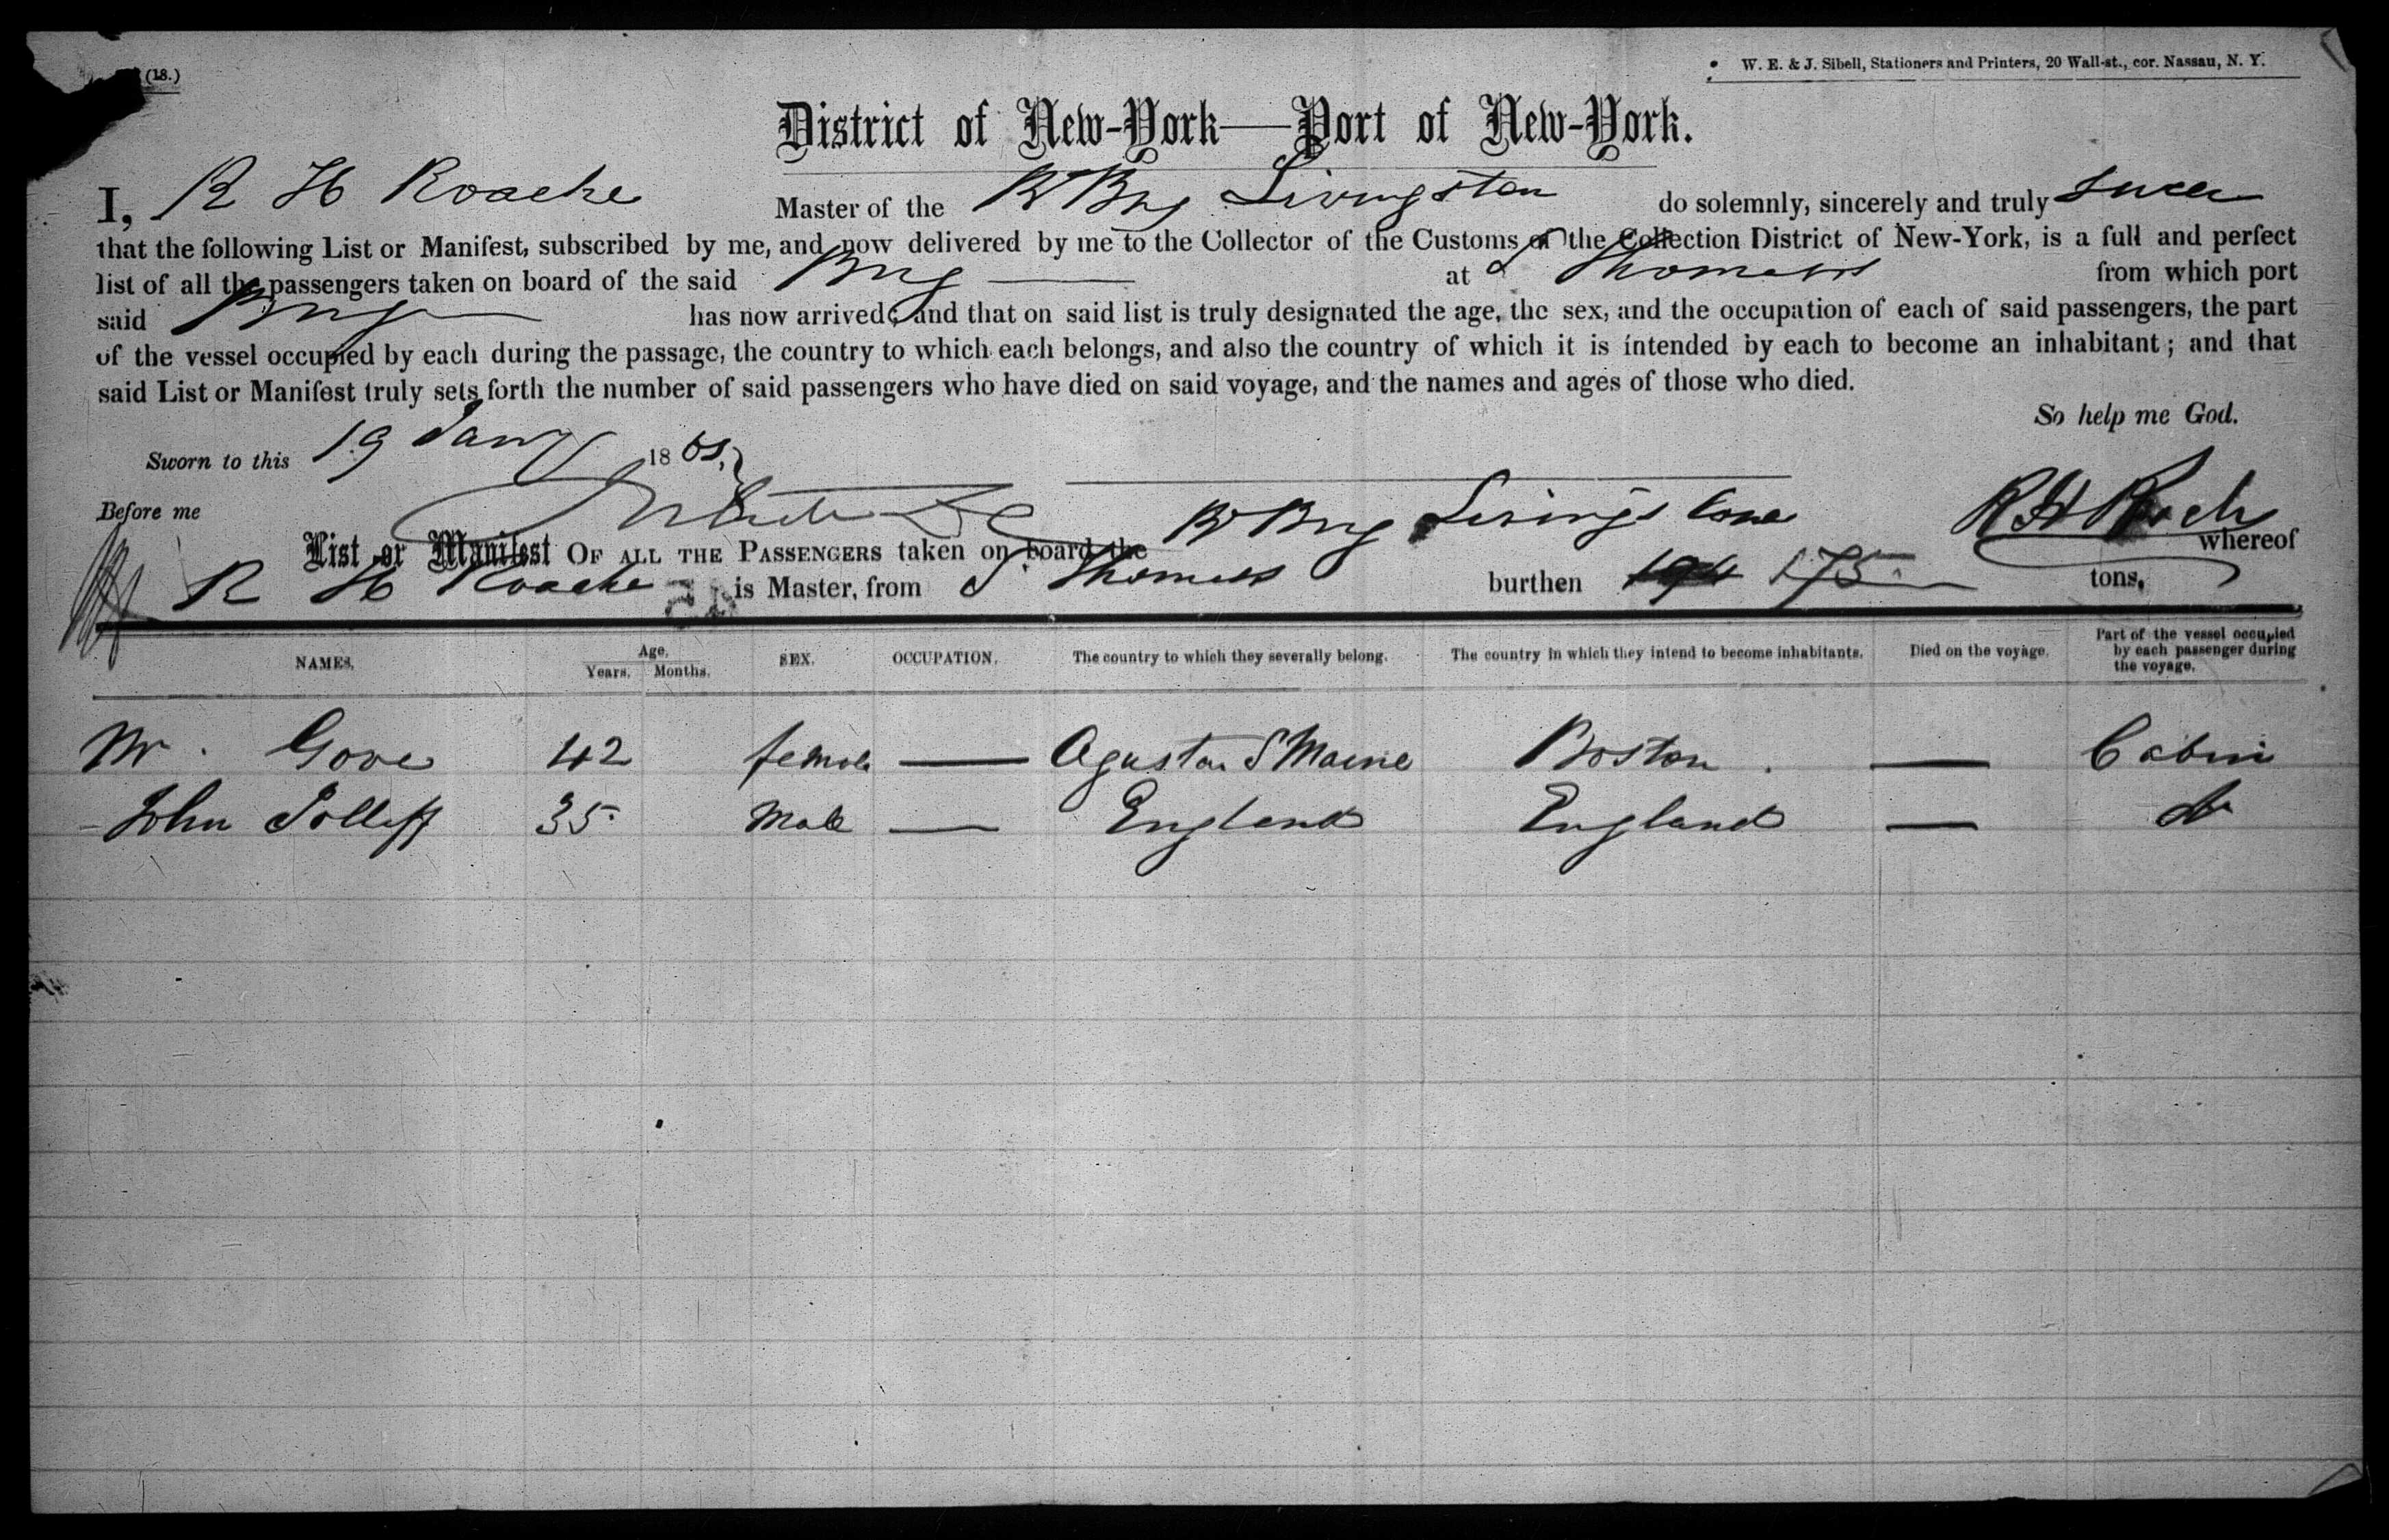 (18.)
W. E. & J. Sibell, Stationers and Printers, 20 Wall-st., cor. Nassau, N. Y.
District of New-York—Port of New-York.
I, R H Roache Master of the Br Brig Livingston do solemnly, sincerely and truly swear
that the following List or Manifest, subscribed by me, and now delivered by me to the Collector of the Customs of the Collection District of New-York, is a full and perfect
list of all the passengers taken on board of the said Brig at St Thomass from which port
said Brig has now arrived; and that on said list is truly designated the age, the sex, and the occupation of each of said passengers, the part
of the vessel occupied by each during the passage, the country to which each belongs, and also the country of which it is intended by each to become an inhabitant; and that
said List or Manifest truly sets forth the number of said passengers who have died on said voyage, and the names and ages of those who died.
So help me God.
Sworn to this 19 Jany 18
Before me R H Roach
List or Manifest OF ALL THE PASSENGERS taken on board the Br Brig Livingstone whereof
R H Roache is Master, from St Thomass burthen 194 175 tons.
NAMES. Age. Years. Months. SEX. OCCUPATION. The country to which they severally belong. The country in which they intend to become inhabitants. Died on the voyage. Part of the vessel occupied by each passenger during the voyage.
Gove 42 female — Agusta S Maine Boston. — Cabin
John 35 Male — England England — Do